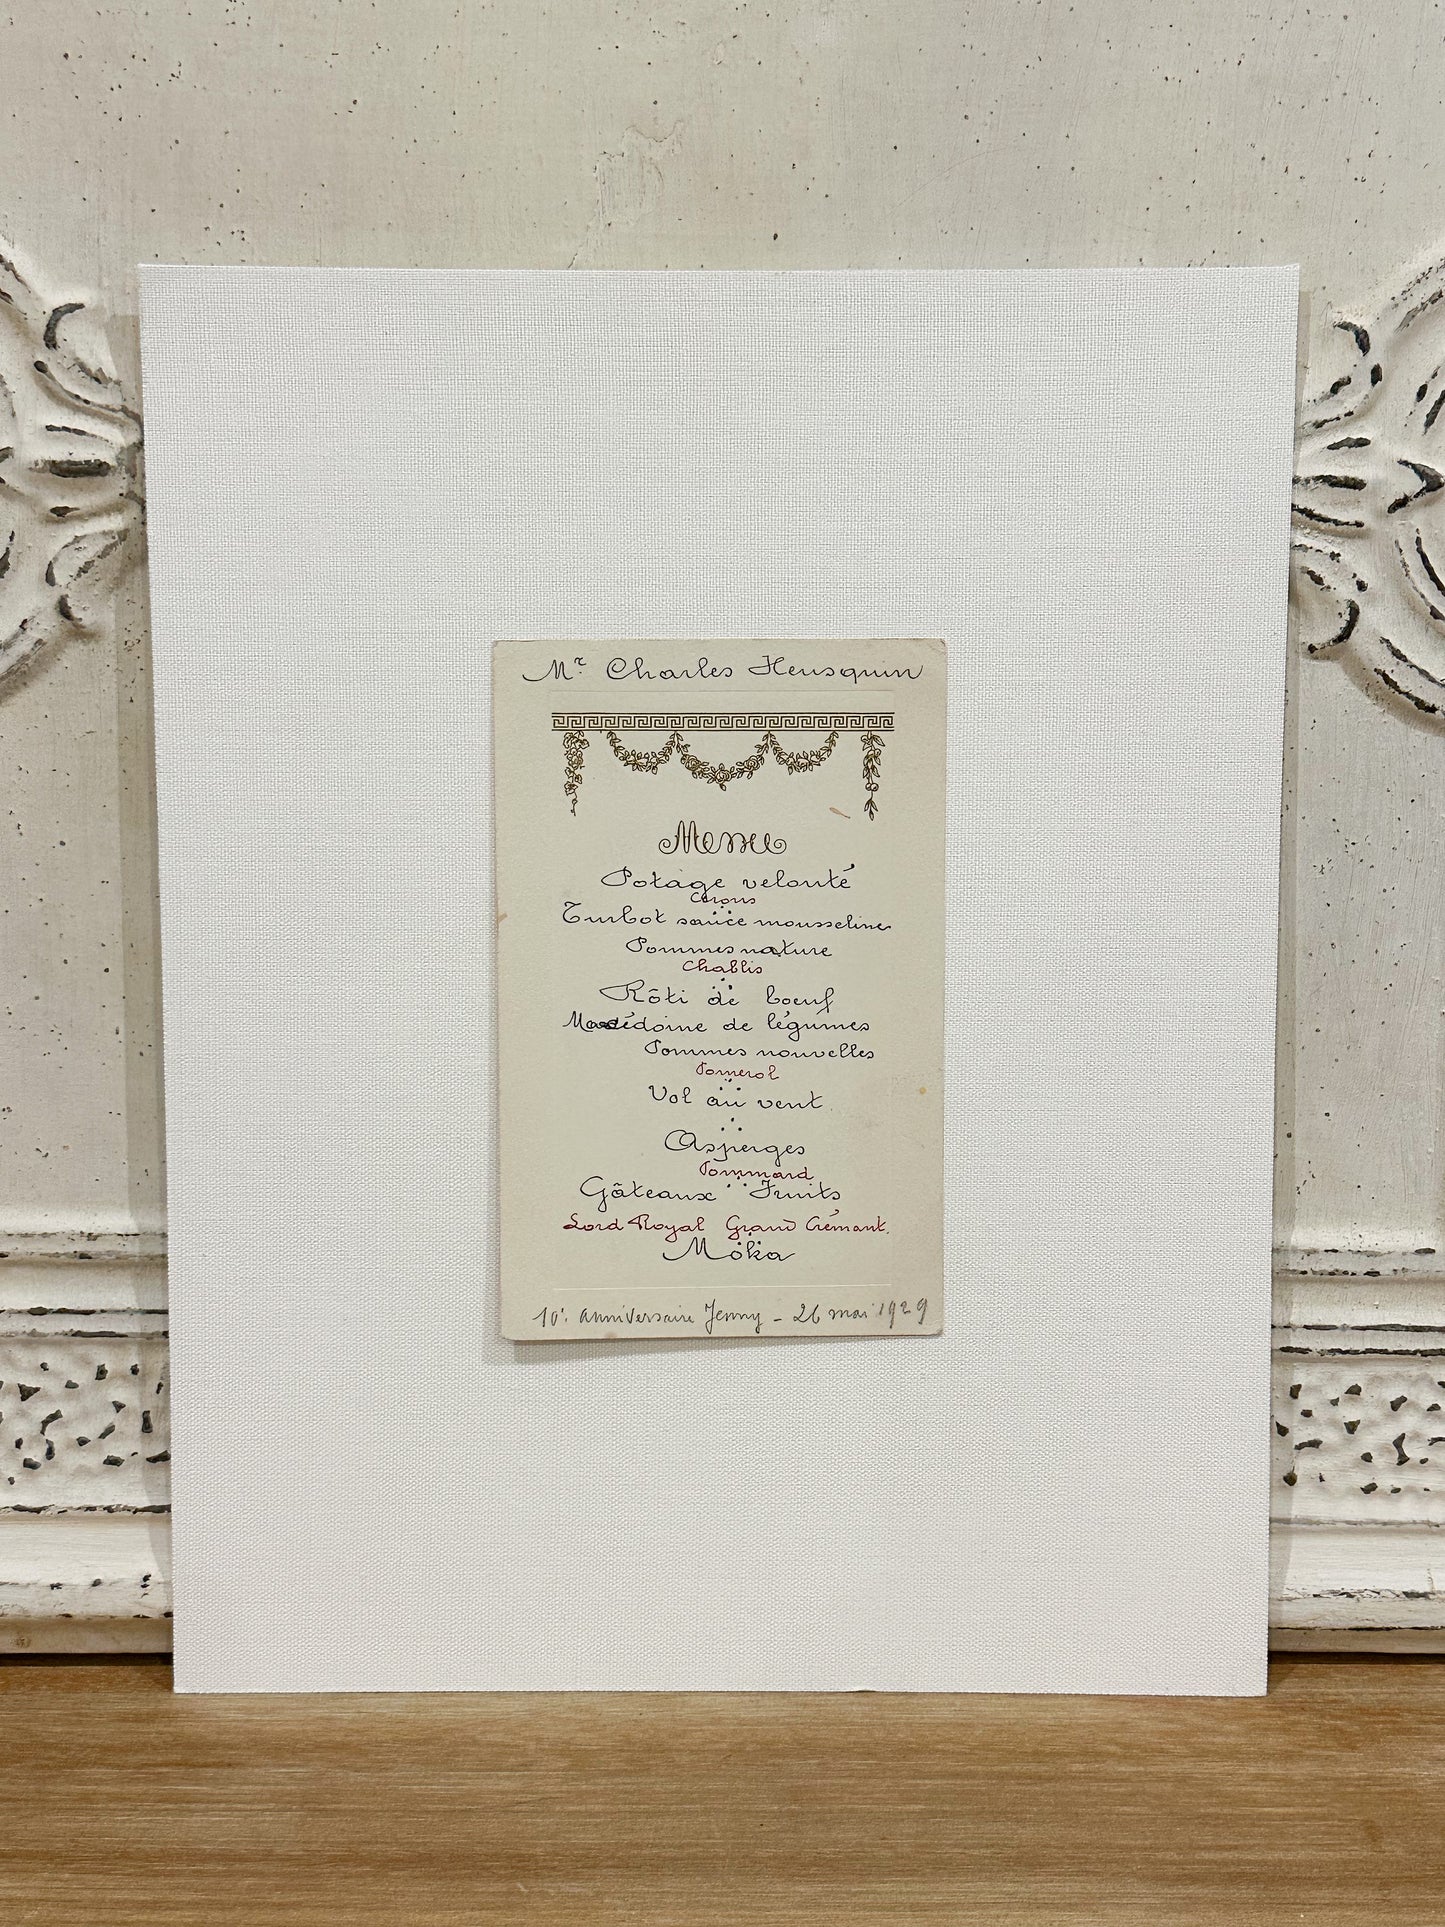 Mr Charles Heusquin
Menu
Potage velouté
Cérons
Turbot sauce mousseline
Pommes nature
Chablis
Rôti de boeuf
Macédoine de légumes
Pommes nouvelles
Pomerol
Vol au vent
Asperges
Pommard
Gâteaux Fruits
Lord Royal Grand Crémant.
Moka
10e. anniversaire Jenny - 26 mai 1929